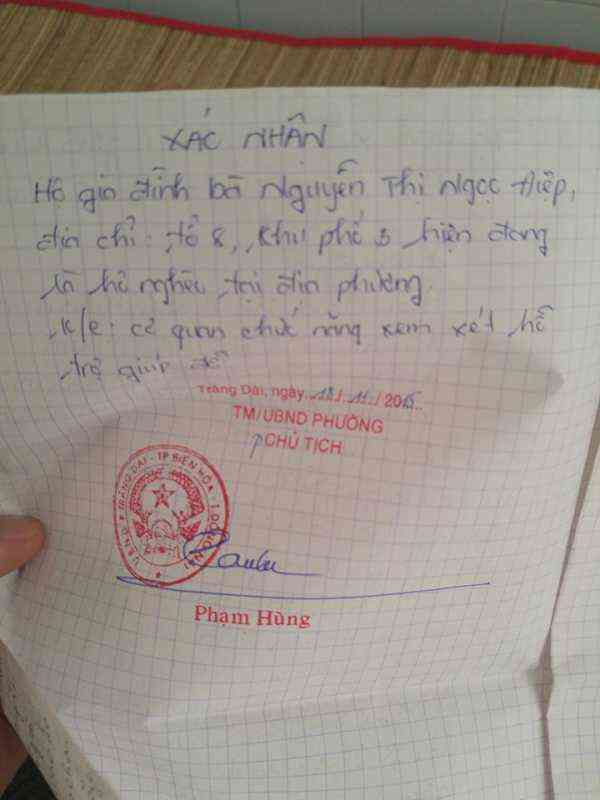 XÁC NHẬN
Hộ gia đình bà Nguyễn Thị Ngọc Hiệp,
địa chỉ: tổ 8, Khu phố 3 hiện đang
là hộ nghèo tại địa phương.
K/c: cơ quan chức năng xem xét hỗ
trợ giúp đỡ
Trảng Dài, ngày 18/ 11 / 2015
TM/UBND PHƯỜNG
CHỦ TỊCH
U.B.N.D P.TRẢNG DÀI - TP BIÊN HÒA - T.ĐỒNG NAI
Phạm Hùng